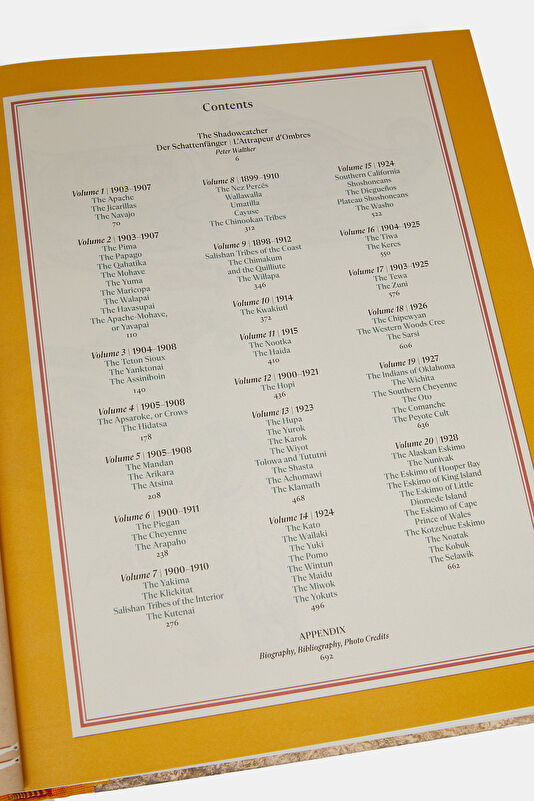 Contents
The Shadowcatcher
Der Schattenfänger | L'Attrapeur d'Ombres
Peter Walther
6
Volume 1 | 1903–1907
The Apache
The Jicarillas
The Navajo
70
Volume 2 | 1903–1907
The Pima
The Papago
The Qahatika
The Mohave
The Yuma
The Maricopa
The Walapai
The Havasupai
The Apache-Mohave,
or Yavapai
110
Volume 3 | 1904–1908
The Teton Sioux
The Yanktonai
The Assiniboin
140
Volume 4 | 1905–1908
The Apsaroke, or Crows
The Hidatsa
178
Volume 5 | 1905–1908
The Mandan
The Arikara
The Atsina
208
Volume 6 | 1900–1911
The Piegan
The Cheyenne
The Arapaho
238
Volume 7 | 1900–1910
The Yakima
The Klickitat
Salishan Tribes of the Interior
The Kutenai
276
Volume 8 | 1899–1910
The Nez Percés
Wallawalla
Umatilla
Cayuse
The Chinookan Tribes
312
Volume 9 | 1898–1912
Salishan Tribes of the Coast
The Chimakum
and the Quilliute
The Willapa
346
Volume 10 | 1914
The Kwakiutl
372
Volume 11 | 1915
The Nootka
The Haida
410
Volume 12 | 1900–1921
The Hopi
436
Volume 13 | 1923
The Hupa
The Yurok
The Karok
The Wiyot
Tolowa and Tututni
The Shasta
The Achomawi
The Klamath
468
Volume 14 | 1924
The Kato
The Wailaki
The Yuki
The Pomo
The Wintun
The Maidu
The Miwok
The Yokuts
496
Volume 15 | 1924
Southern California
Shoshoneans
The Diegueños
Plateau Shoshoneans
The Washo
522
Volume 16 | 1904–1925
The Tiwa
The Keres
550
Volume 17 | 1903–1925
The Tewa
The Zuni
576
Volume 18 | 1926
The Chipewyan
The Western Woods Cree
The Sarsi
606
Volume 19 | 1927
The Indians of Oklahoma
The Wichita
The Southern Cheyenne
The Oto
The Comanche
The Peyote Cult
636
Volume 20 | 1928
The Alaskan Eskimo
The Nunivak
The Eskimo of Hooper Bay
The Eskimo of King Island
The Eskimo of Little
Diomede Island
The Eskimo of Cape
Prince of Wales
The Kotzebue Eskimo
The Noatak
The Kobuk
The Selawik
662
APPENDIX
Biography, Bibliography, Photo Credits
692